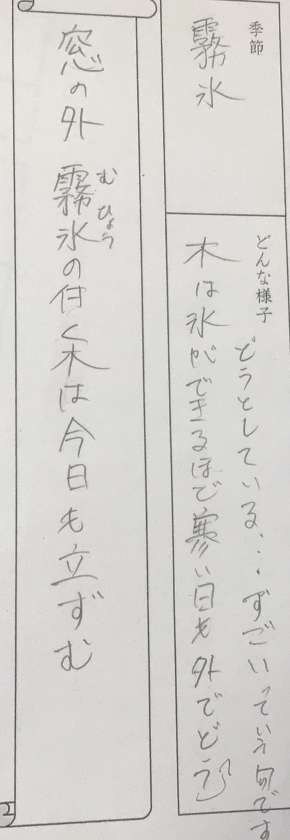 季節
霧氷
どんな様子
木は氷ができるほで寒い日も外でどう
どうとしている…すごいっていう句です
窓の外 霧氷の付く木は今日も立ずむ
むひょう
2